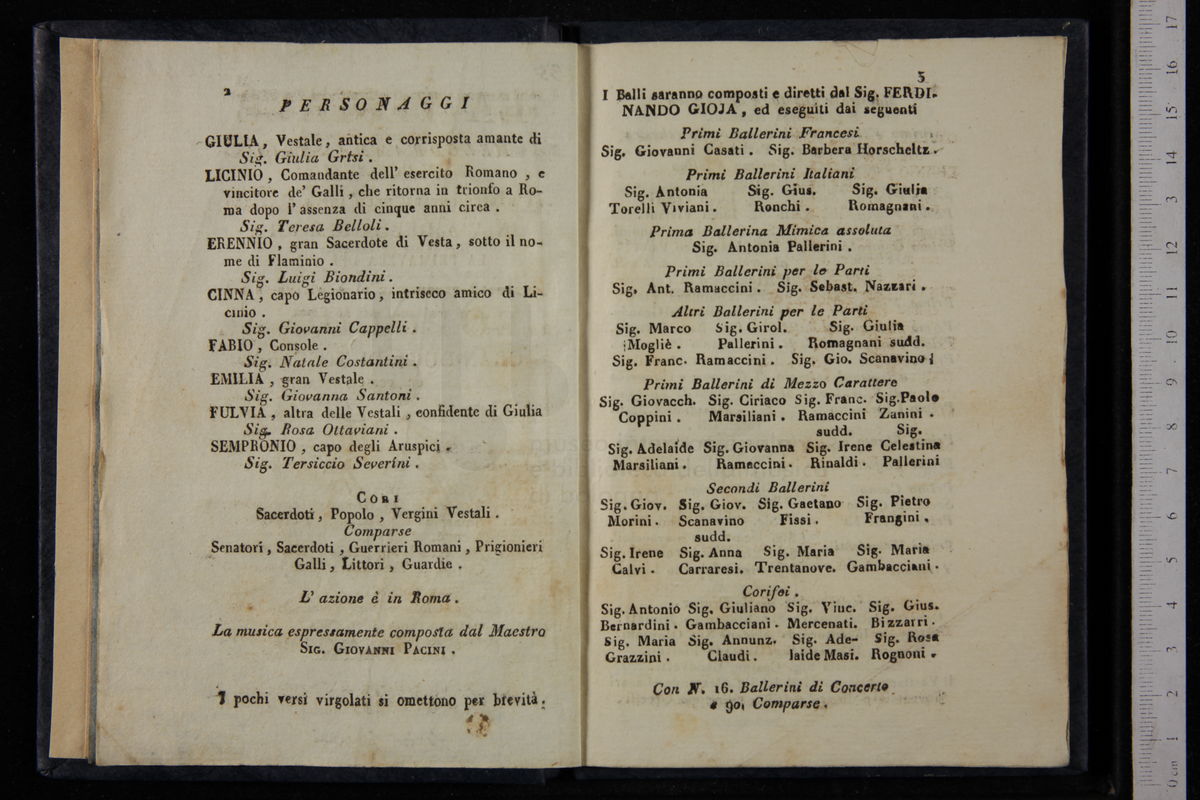 2
PERSONAGGI
GIULIA, Vestale, antica e corrisposta amante di
Sig. Giulia Grtsi.
LICINIO, Comandante dell' esercito Romano, e
vincitore de' Galli, che ritorna in trionfo a Ro-
ma dopo l' assenza di cinque anni circa.
Sig. Teresa Belloli.
ERENNIO, gran Sacerdote di Vesta, sotto il no-
me di Flaminio.
Sig. Luigi Biondini.
CINNA, capo Legionario, intriseco amico di Li-
cinio.
Sig. Giovanni Cappelli.
FABIO, Console.
Sig. Natale Costantini.
EMILIA, gran Vestale.
Sig. Giovanna Santoni.
FULVIA, altra delle Vestali, confidente di Giulia
Sig. Rosa Ottaviani.
SEMPRONIO, capo degli Aruspici.
Sig. Tersiccio Severini.
CORI
Sacerdoti, Popolo, Vergini Vestali.
Comparse
Senatori, Sacerdoti, Guerrieri Romani, Prigionieri
Galli, Littori, Guardie.
L' azione è in Roma.
La musica espressamente composta dal Maestro
SIG. GIOVANNI PACINI.
I pochi versi virgolati si omettono per brevità.
3
I Balli saranno composti e diretti dal Sig. FERDI-
NANDO GIOJA, ed eseguiti dai seguenti
Primi Ballerini Francesi
Sig. Giovanni Casati. Sig. Barbera Horscheltz.
Primi Ballerini Italiani
Sig. Antonia Sig. Gius. Sig. Giulia
Torelli Viviani. Ronchi. Romagnani.
Prima Ballerina Mimica assoluta
Sig. Antonia Pallerini.
Primi Ballerini per le Parti
Sig. Ant. Ramaccini. Sig. Sebast. Nazzari.
Altri Ballerini per le Parti
Sig. Marco Sig. Girol. Sig. Giulia
Mogliè. Pallerini. Romagnani sudd.
Sig. Franc. Ramaccini. Sig. Gio. Scanavino
Primi Ballerini di Mezzo Carattere
Sig. Giovacch. Sig. Ciriaco Sig. Franc. Sig. Paolo
Coppini. Marsiliani. Ramaccini Zanini.
sudd. Sig.
Sig. Adelaide Sig. Giovanna Sig. Irene Celestina
Marsiliani. Rameccini. Rinaldi. Pallerini
Secondi Ballerini
Sig. Giov. Sig. Giov. Sig. Gaetano Sig. Pietro
Morini. Scanavino Fissi. Frangini.
sudd.
Sig. Irene Sig. Anna Sig. Maria Sig. Maria
Calvi. Carraresi. Trentanove. Gambacciani.
Corifei.
Sig. Antonio Sig. Giuliano Sig. Vinc. Sig. Gius.
Bernardini. Gambacciani. Mercenati. Bizzarri.
Sig. Maria Sig. Annunz. Sig. Ade- Sig. Rosa
Grazzini. Claudi. laide Masi. Rognoni.
Con N. 16. Ballerini di Concerto
e 90, Comparse.
0 cm 1 2 3 4 5 6 7 8 9 10 11 12 3 14 15 16 17